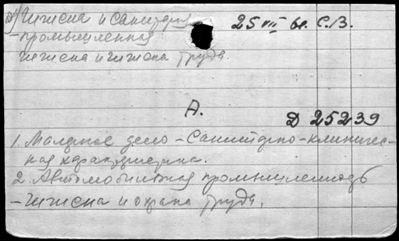 в) Гигиена и санитария
25 VIII 61. С.В.
- промышленная
гигиена и гигиена труда.
А.
Д 25239
1. Малярное дело - Санитарно-клиничес-
кая характеристика.
2. Автомобильная промышленность
- Гигиена и охрана труда.